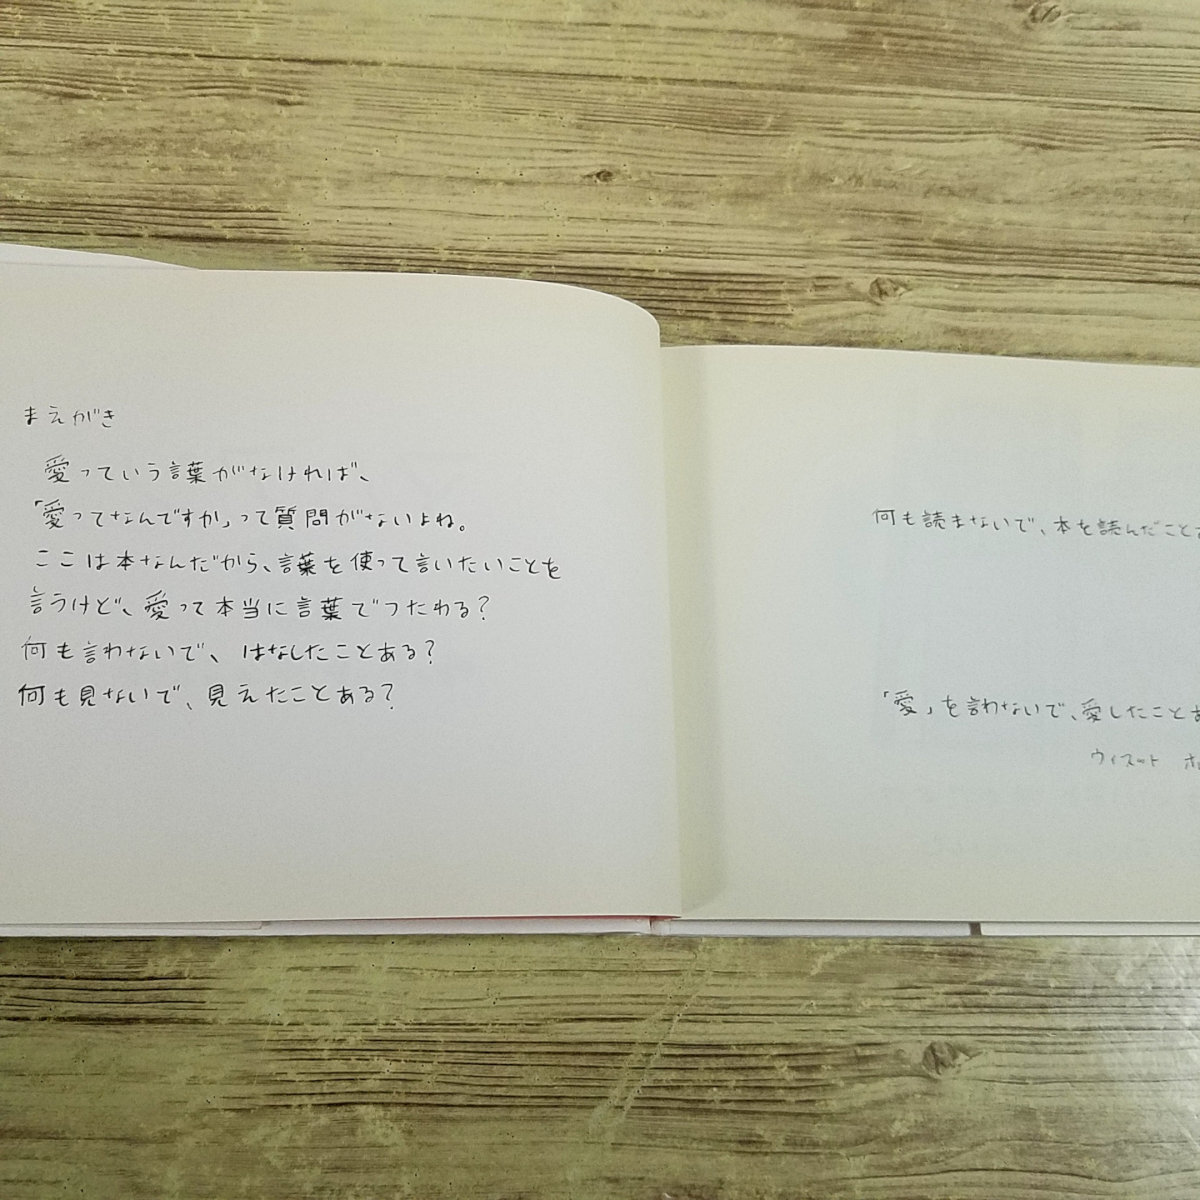 まえがき
愛っていう言葉がなければ、
「愛ってなんですか」って質問がないよね。
ここは本なんだから、言葉を使って言いたいことを
言うけど、愛って本当に言葉でつたわる?
何も言わないで、はなしたことある?
何も見ないで、見えたことある?
何も読まないで、本を読んだこと
「愛」を言わないで、愛したこと
ウィスット ポ